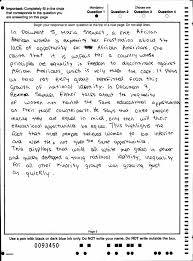 Important: Completely fill in the circle
that corresponds to the question you
are answering on this page.
Mandatory
Question 1
Question 2
Question 3
Begin your response to each question at the top of a new page. Do not skip lines.
In Document 5, Maria Stewart, a free African
American woman is expressing her frustration about the
lack of opportunity for African Americans. She
claims that it is unfair for a country whose
principles are equality & freedom to discriminate against
African Americans, which is very much the case. It shows
us how not every group benefitted from this
growth of national identity. In Document 3,
Emma Samuel Fisher talks about the inequality
of women not having the same educational opportunities
as their male counterparts. He says that once people
realize they are equal in mind, only then will their
educational opportunities be equal. This highlights the
fact that most people believed women to be inferior
and were they not given the same opportunities.
This displays that while all white men grew in power
and quickly developed a strong national identity, inequality
for all other minority groups was growing just
as quickly.
Page 3
Use a pen with black or dark blue ink only. Do NOT write your name. Do NOT write outside the box.
0093450